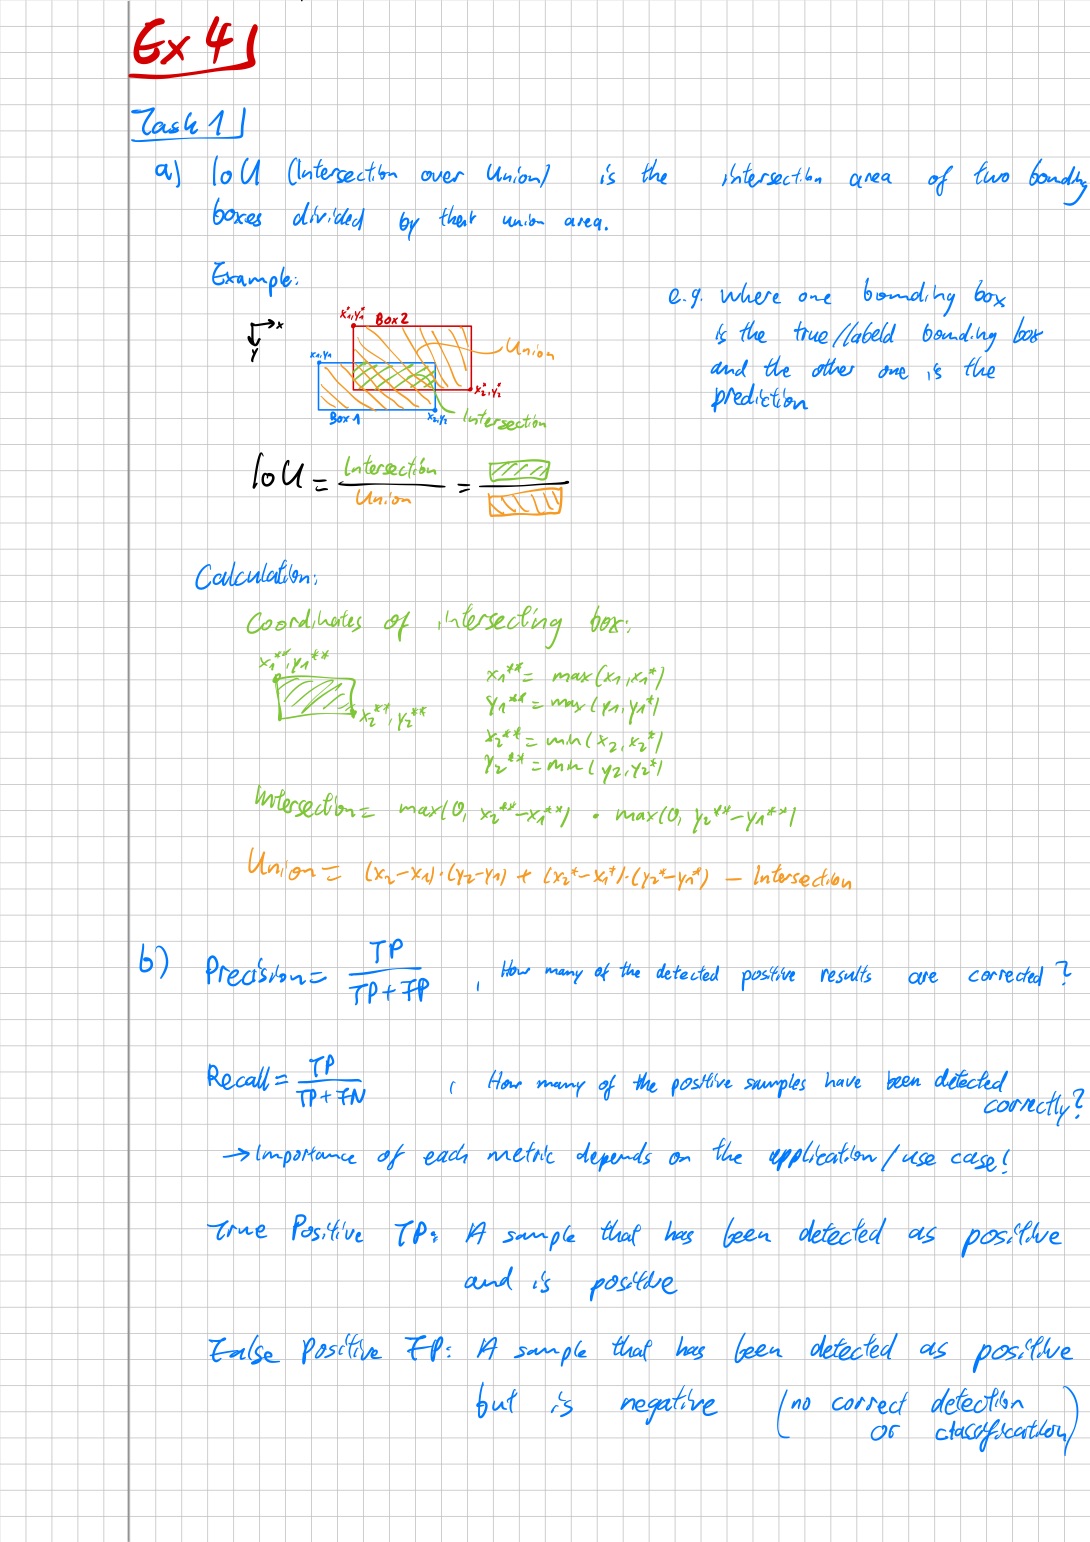 Ex 4
Task 1
a) IoU (Intersection over Union) is the intersection area of two bounding
boxes divided by their union area.
Example:
e.g. where one bounding box
is the true/labeld bounding box
and the other one is the
prediction
x
y
x₁*,y₁* Box 2
Union
x₁,y₁
x₂*,y₂*
Box 1
x₂,y₂
Intersection
IoU = Intersection / Union =
Calculation:
Coordinates of intersecting box:
x₁**,y₁**
x₂**,y₂**
x₁** = max(x₁,x₁*)
y₁** = max(y₁,y₁*)
x₂** = min(x₂,x₂*)
y₂** = min(y₂,y₂*)
Intersection = max(0, x₂**-x₁**) · max(0, y₂**-y₁**)
Union = (x₂-x₁)·(y₂-y₁) + (x₂*-x₁*)·(y₂*-y₁*) - Intersection
b) Precision = TP / TP+FP , How many of the detected positive results are corrected?
Recall = TP / TP+FN , How many of the positive samples have been detected
correctly?
→ Importance of each metric depends on the application/use case!
True Positive TP: A sample that has been detected as positive
and is positive
False Positive FP: A sample that has been detected as positive
but is negative (no correct detection
or classification)